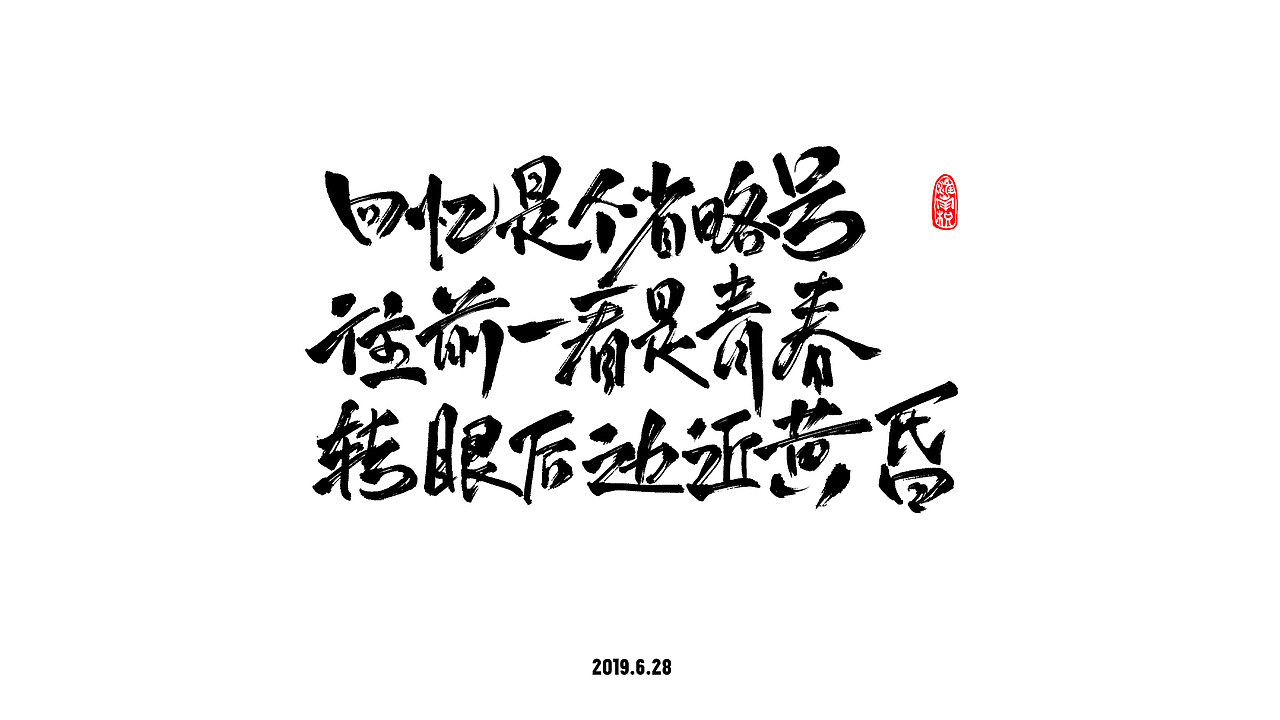 回忆是个省略号
往前一看是青春
转眼后边近黄昏
2019.6.28